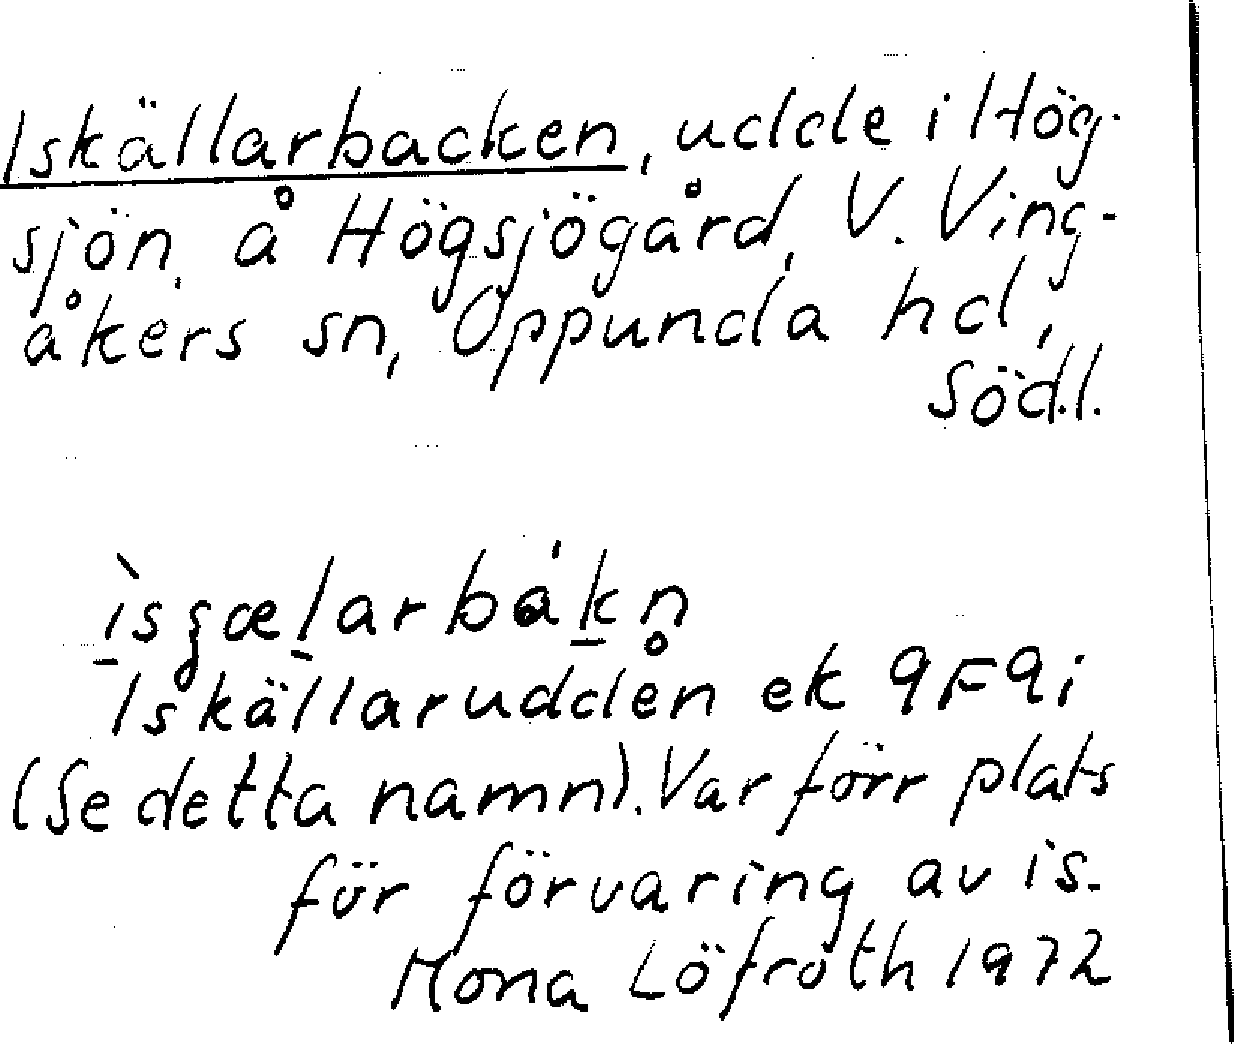 Iskällarbacken, udde i Hög-
sjön, å Högsjögård, V. Ving-
åkers sn, Oppunda hd,
Södl.
Iskällarudden ek 9F9i
(Se detta namn). Var förr plats
för förvaring av is.
Mona Löfroth 1972